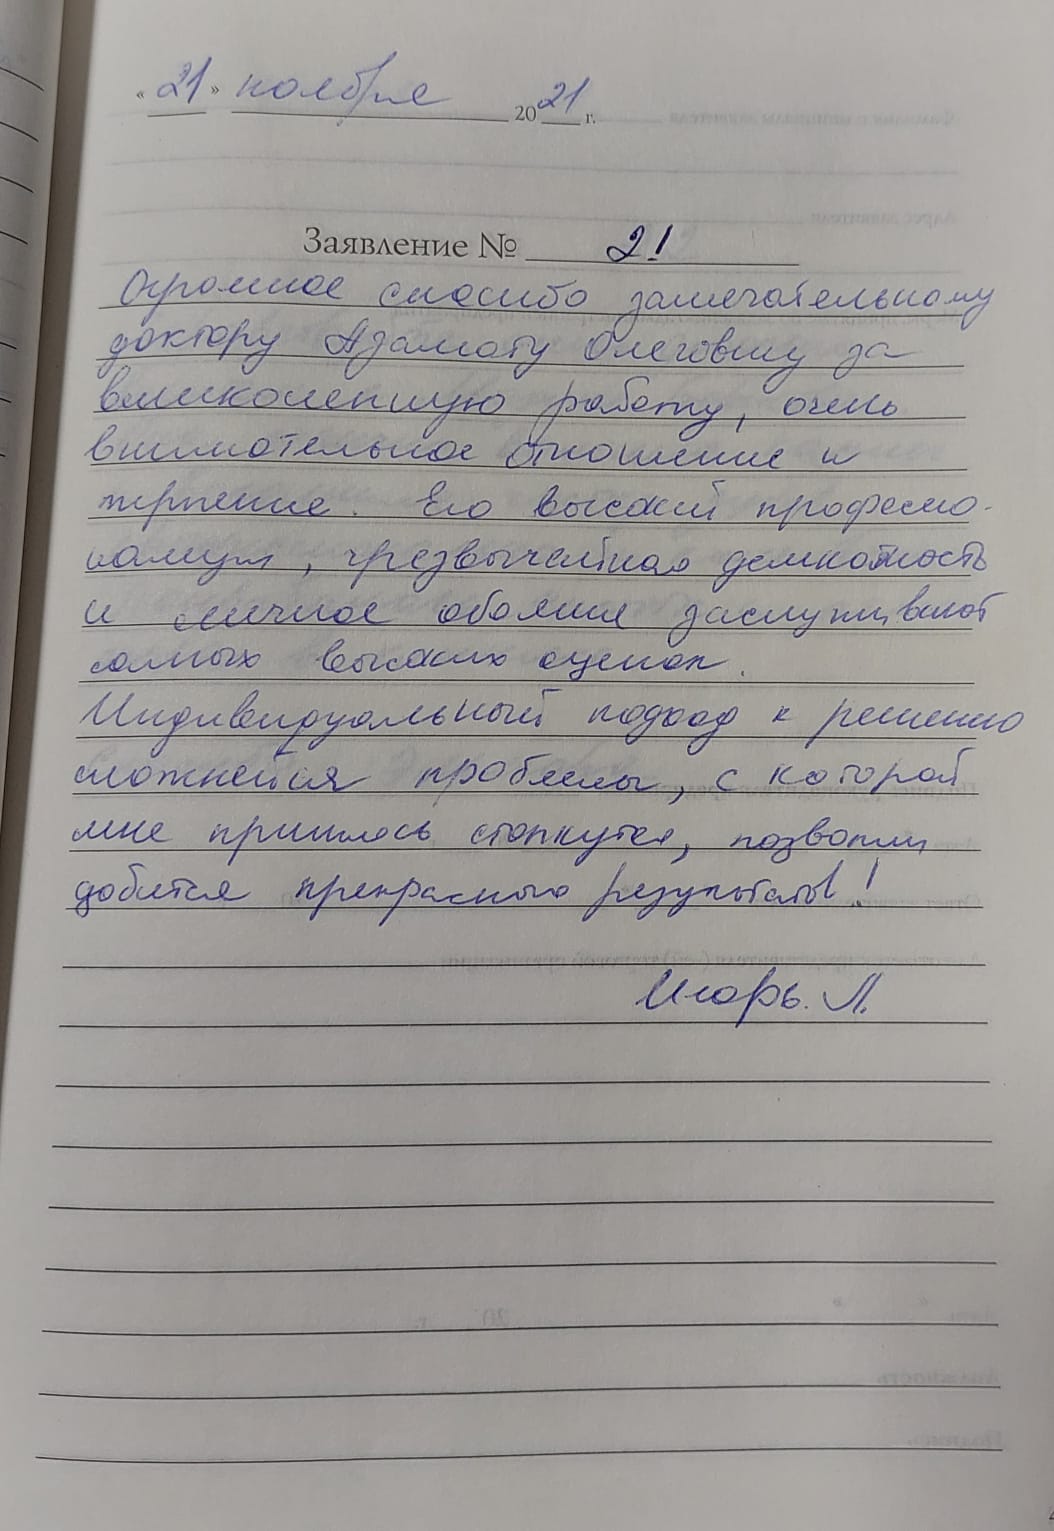 « 21 » ноября 2021 г.
Заявление № 21
Огромное спасибо замечательному
доктору Азамату Олеговичу за
великолепную работу, очень
внимательное отношение и
терпение. Его высокий професио-
нализм, чрезвычейная деликатность
и личное обояние заслуживают
самых высоких оценок.
Индивидуальный подход к решению
сложнейшя проблемы, с которой
мне пришлось столкнутся, позволил
добится прекрасного результата!
Игорь. Л.